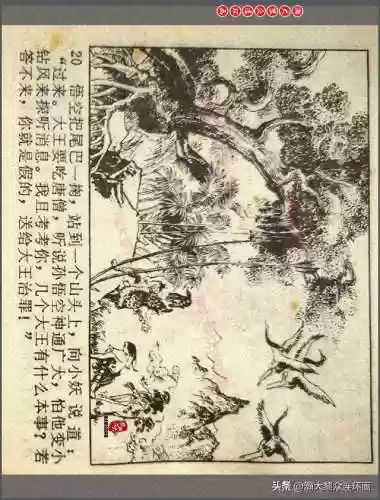 20 悟空把尾巴一，站到一个山头上，向小妖说道：
“过来。大王要吃唐僧，听说孙悟空神通广大，怕他变小
钻风来探听消息。我且考考你，几个大王有什么本事？若
答不来，你就是假的，送给大王治罪！”
头条 @瀚大黎众连环画